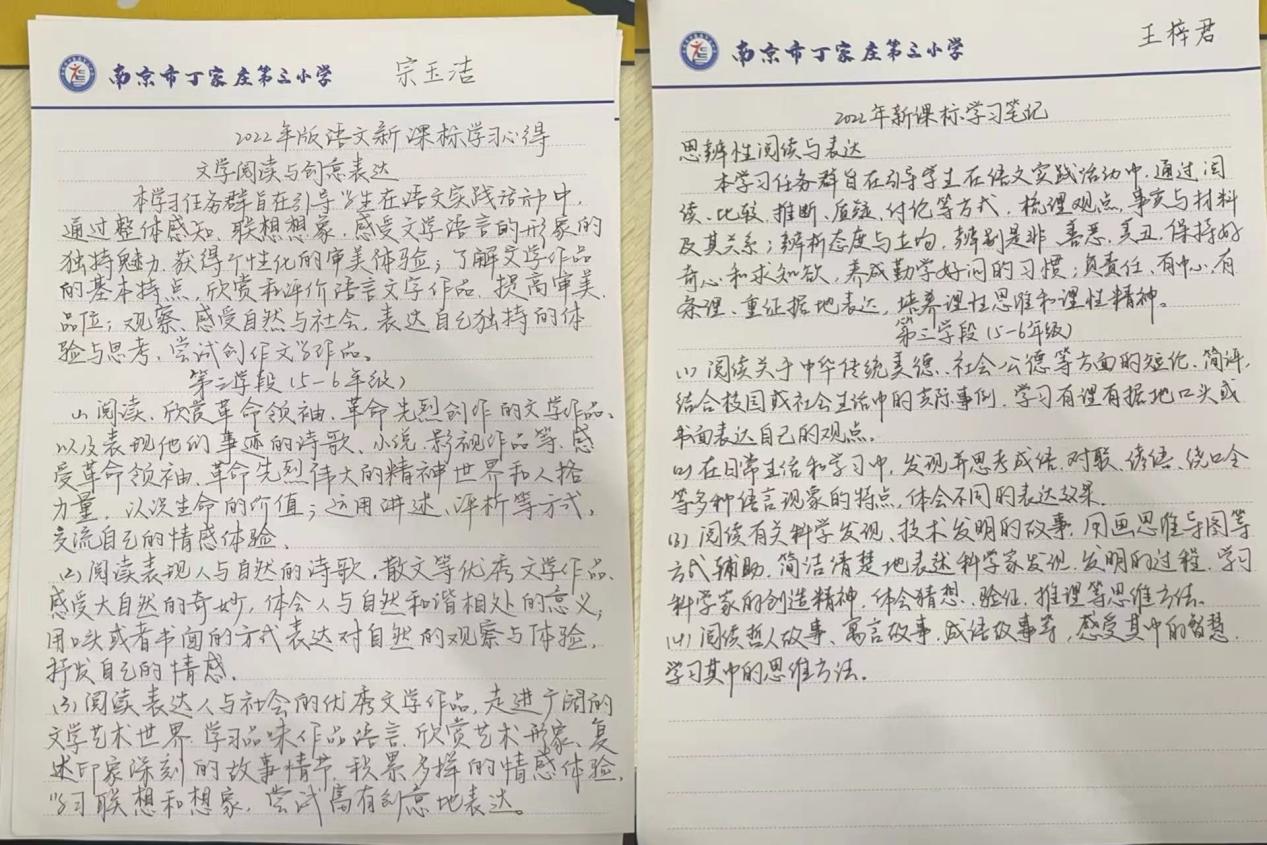 南京市丁家庄第三小学
宗玉洁
2022年版语文新课标学习心得
文学阅读与创意表达
本学习任务群旨在引导学生在语文实践活动中,
通过整体感知、联想想象,感受文学语言的形象的
独特魅力,获得个性化的审美体验;了解文学作品
的基本特点,欣赏和评价语言文字作品,提高审美
品位;观察、感受自然与社会,表达自己独特的体
验与思考,尝试创作文学作品。
第三学段(5-6年级)
(1)阅读、欣赏革命领袖、革命先烈创作的文学作品,
以及表现他们事迹的诗歌、小说、影视作品等,感
受革命领袖、革命先烈伟大的精神世界和人格
力量,认识生命的价值;运用讲述、评析等方式,
交流自己的情感体验、
(2)阅读表现人与自然的诗歌,散文等优秀文学作品,
感受大自然的奇妙,体会人与自然和谐相处的意义;
用口头或者书面的方式表达对自然的观察与体验,
抒发自己的情感.
(3)阅读表达人与社会的优秀文学作品,走进广阔的
文学艺术世界,学习品味作品语言、欣赏艺术形象、复
述印象深刻的故事情节,积累多样的情感体验,
学习联想和想象,尝试富有创意地表达。
南京市丁家庄第三小学
王梓君
2022年新课标学习笔记
思辨性阅读与表达
本学习任务群旨在引导学生在语文实践活动中,通过阅
读、比较、推断、质疑、讨论等方式,梳理观点、事实与材料
及其关系;辨析态度与立场,辨别是非、善恶、美丑,保持好
奇心和求知欲,养成勤学好问的习惯;负责任、有中心、有
条理、重证据地表达,培养理性思维和理性精神。
第三学段(5-6年级)
(1)阅读关于中华传统美德、社会公德等方面的短论、简评,
结合校园或社会生活中的实际事例,学习有理有据地口头或
书面表达自己的观点。
(2)在日常生活和学习中,发现并思考成语、对联、谚语、绕口令
等多种语言现象的特点,体会不同的表达效果.
(3)阅读有关科学发现、技术发明的故事,用画思维导图等
方式辅助,简洁清楚地表述科学家发现、发明的过程,学习
科学家的创造精神,体会猜想、验证、推理等思维方法.
(4)阅读哲人故事、寓言故事,成语故事等,感受其中的智慧,
学习其中的思维方法.